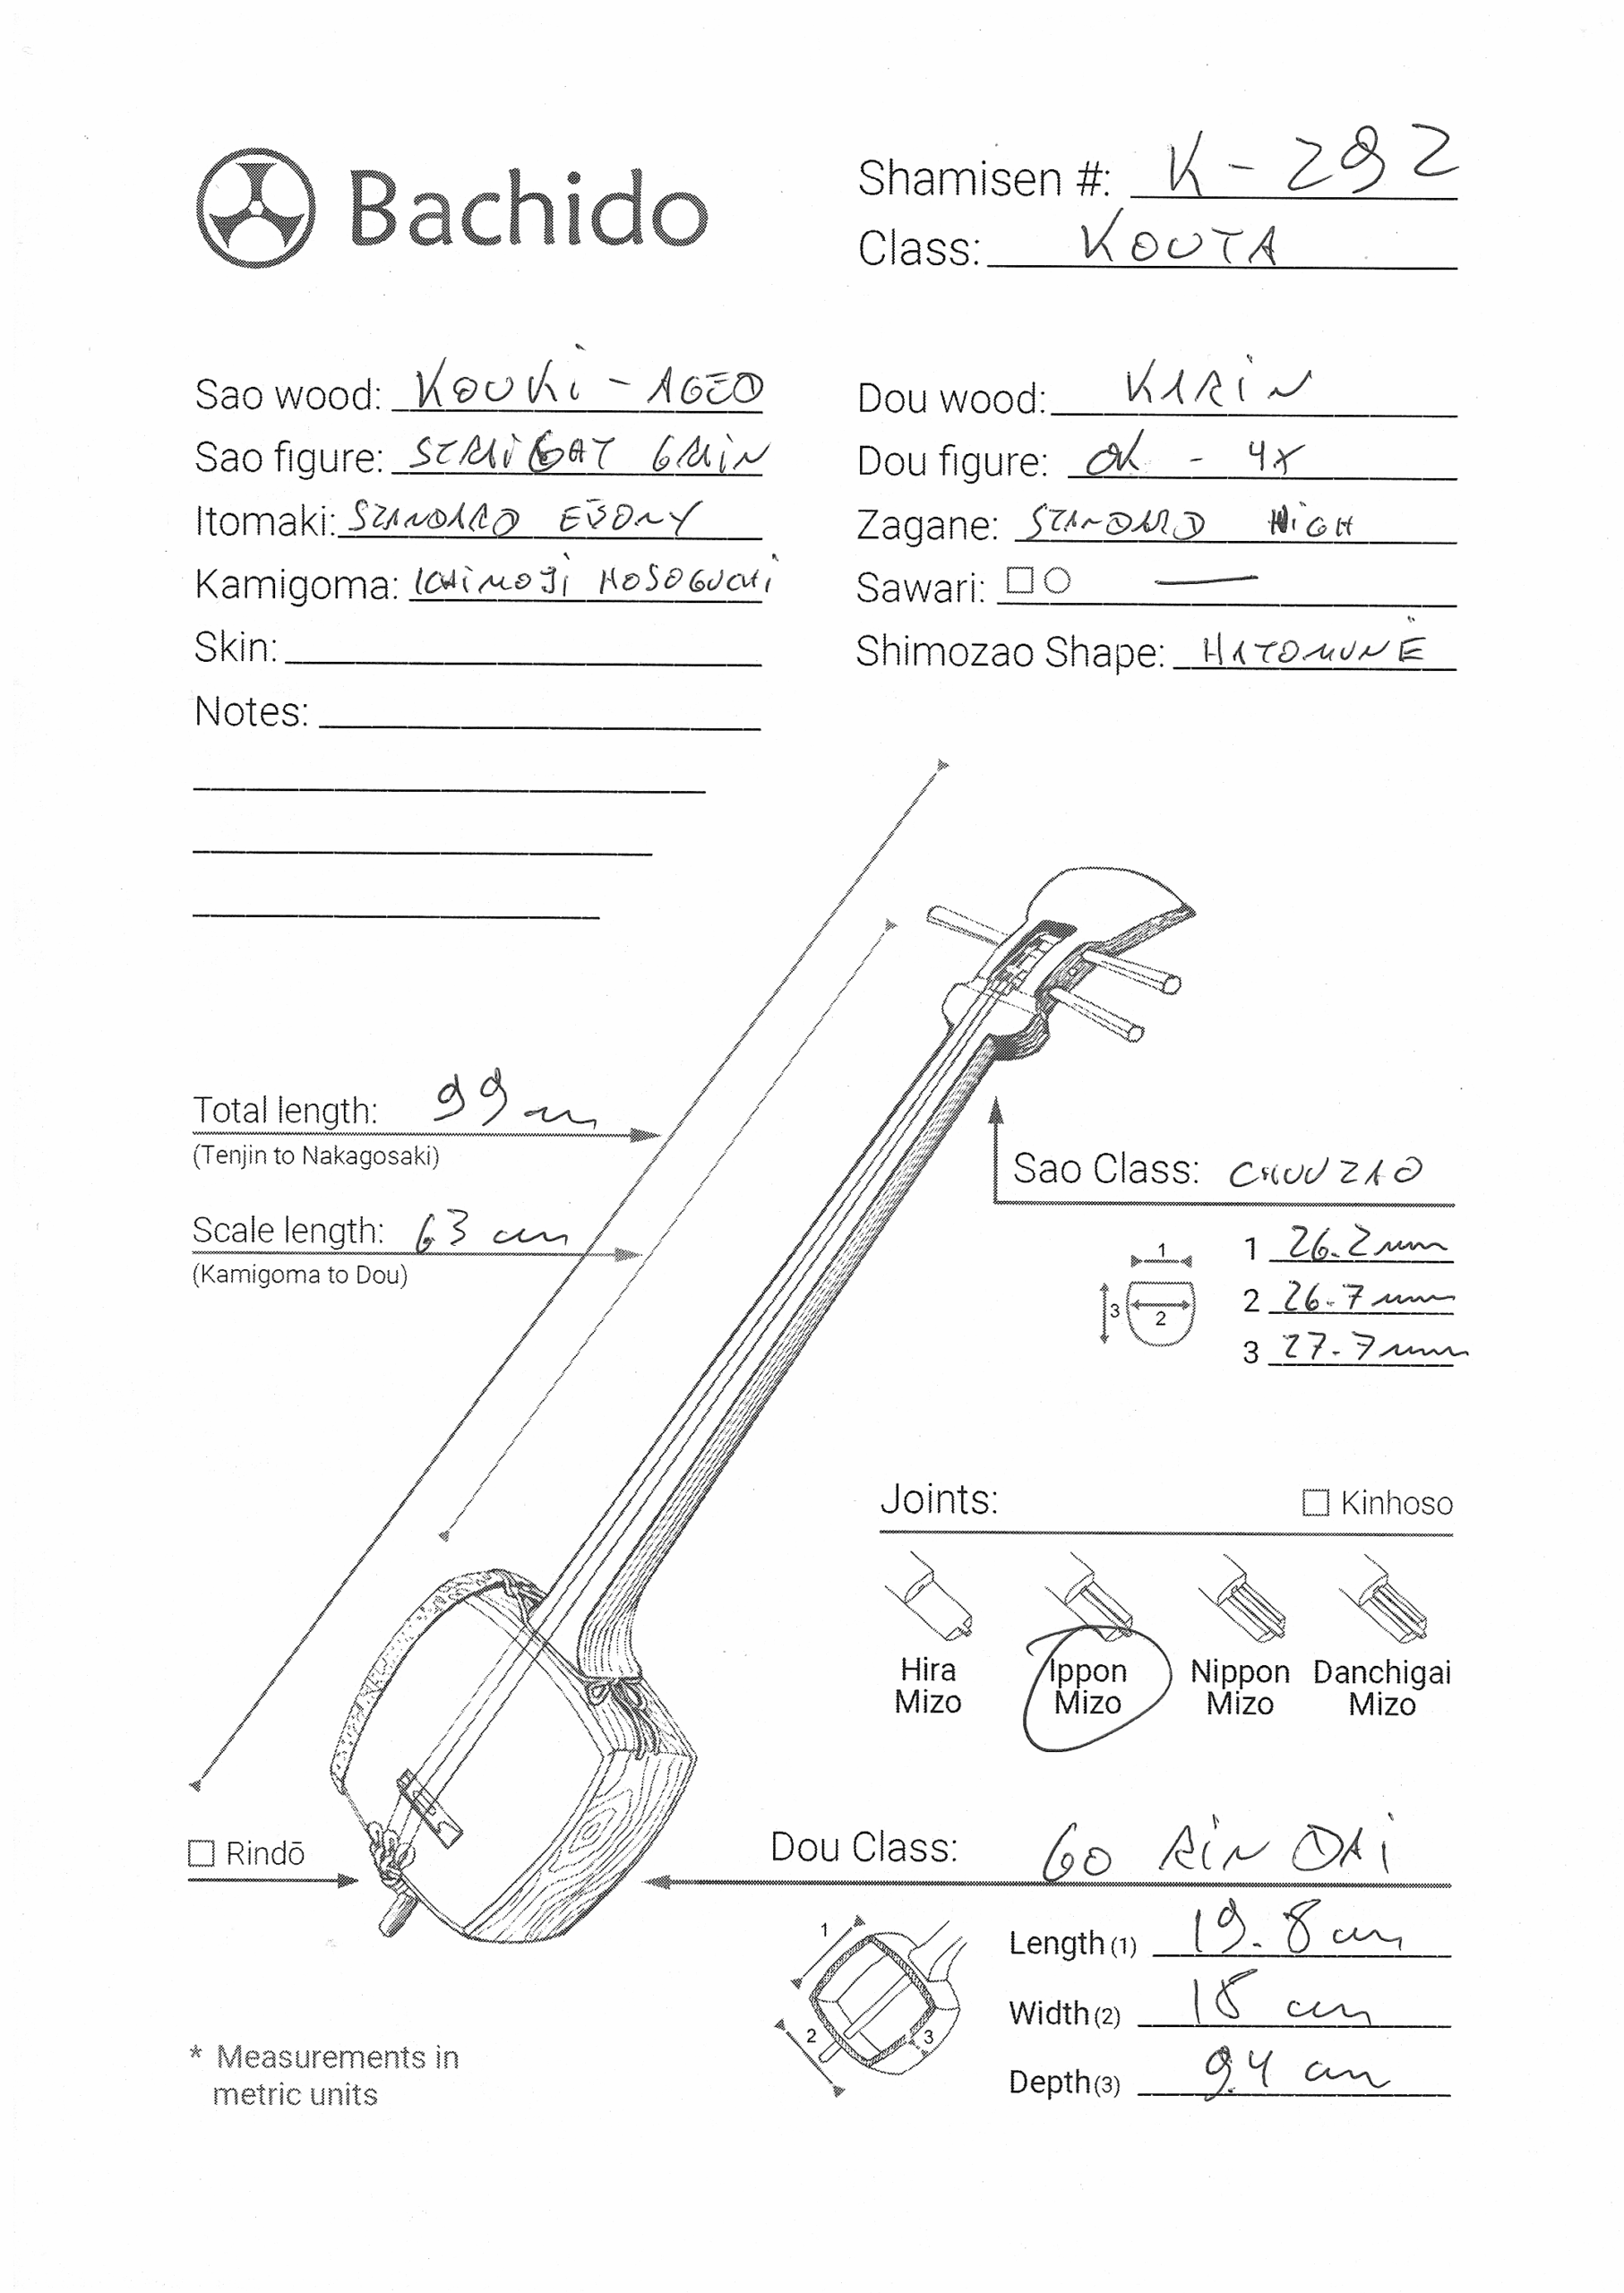 Bachido
Shamisen #: K-292
Class: KOUTA
Sao wood: KOUKi - AGED
Sao figure: STRAiGHT GRAiN
Itomaki: STANDARD EBONY
Kamigoma: ICHiMOJi HOSOGUCHi
Skin:
Notes:
Dou wood: KARiN
Dou figure: OK - 4X
Zagane: STANDARD HiGH
Sawari: □○ —
Shimozao Shape: HATOMUNE
Total length: 99 cm
(Tenjin to Nakagosaki)
Scale length: 63 cm
(Kamigoma to Dou)
Sao Class: CHUUZAO
1
3
2
1 26.2 mm
2 26.7 mm
3 27.7 mm
Joints: □ Kinhoso
Hira Mizo
Ippon Mizo
Nippon Mizo
Danchigai Mizo
□ Rindō
Dou Class: GO RiN DAi
1
2
3
Length (1) 19.8 cm
Width (2) 18 cm
Depth (3) 9.4 cm
* Measurements in
metric units